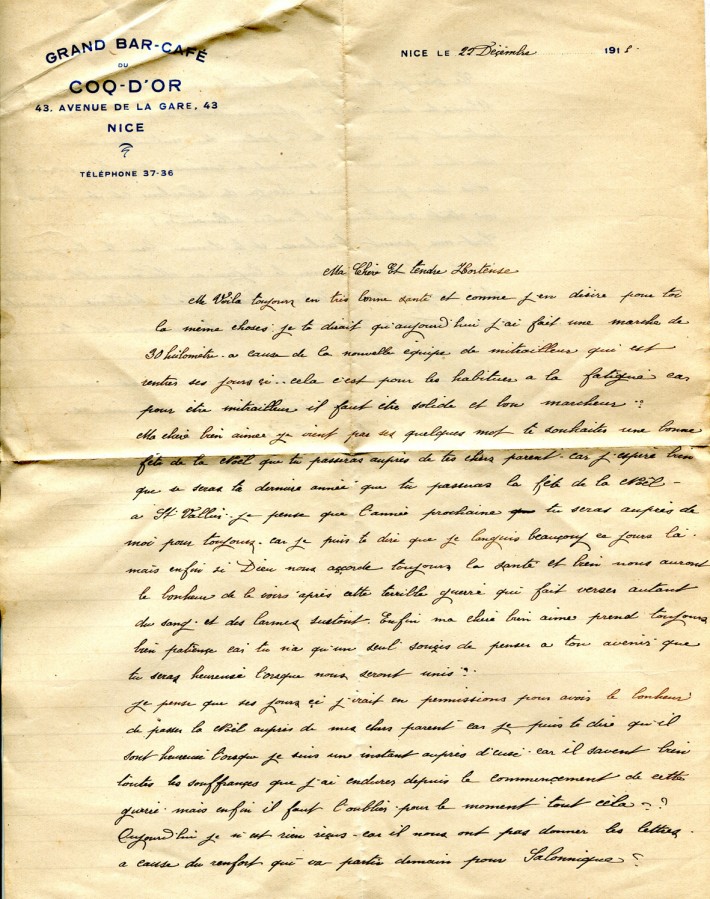 GRAND BAR-CAFÉ
DU
COQ-D'OR
43, AVENUE DE LA GARE, 43
NICE
TÉLÉPHONE 37-36
NICE LE 22 Décembre 191
Ma Chère Et tendre Hortense
Me Voila toujours en très bonne santé et comme j'en désire pour toi
la même choses. je te dirait qu'aujourd'hui j'ai fait une marche de
30 kilomètre a cause de la nouvelle équipe de mitrailleur qui est
rentrer ses jours çi.. cela c'est pour les habituer a la fatigue car
pour être mitrailleur il faut être solide et bon marcheur.
Ma chère bien aimer je vient par ses quelques mot te souhaiter une bonne
fête de la Noël que tu passeras auprès de tes chers parent. car j'espère bien
que se seras ta dernière année que tu passeras la fête de la Noël -
a St Vallier. je pense que l'année prochaine tu seras auprès de
moi pour toujours. car je puis te dire que je languis beaucoup ce jours la.
mais enfin si Dieu nous açcorde toujours la santé et bien nous auront
le bonheur de le voirs après cette terrible guerre qui fait verser autant
du sang. et des larmes surtout. Enfin ma chère bien aimer prend toujours
bien patiençe car tu n'a qu'un seul souçis de penser a ton avenir que
tu seras heureuse lorsque nous seront unis.
je pense que ses jours çi j'irait en permissions pour avoir le bonheur
de passer la Noël auprès de mes chers parent car je puis te dire qu'il
sont heureuse lorsque je suis un instant auprès d'eux. car il savent bien
toutes les souffrançes que j'ai endurer depuis le commençement de cette
guerre. mais enfin il faut l'oublier pour le moment tout cela -?
Aujourd'hui je n'est rien reçus - car il nous ont pas donner les lettres.
a cause du renfort qui va partir demain pour Salonnique